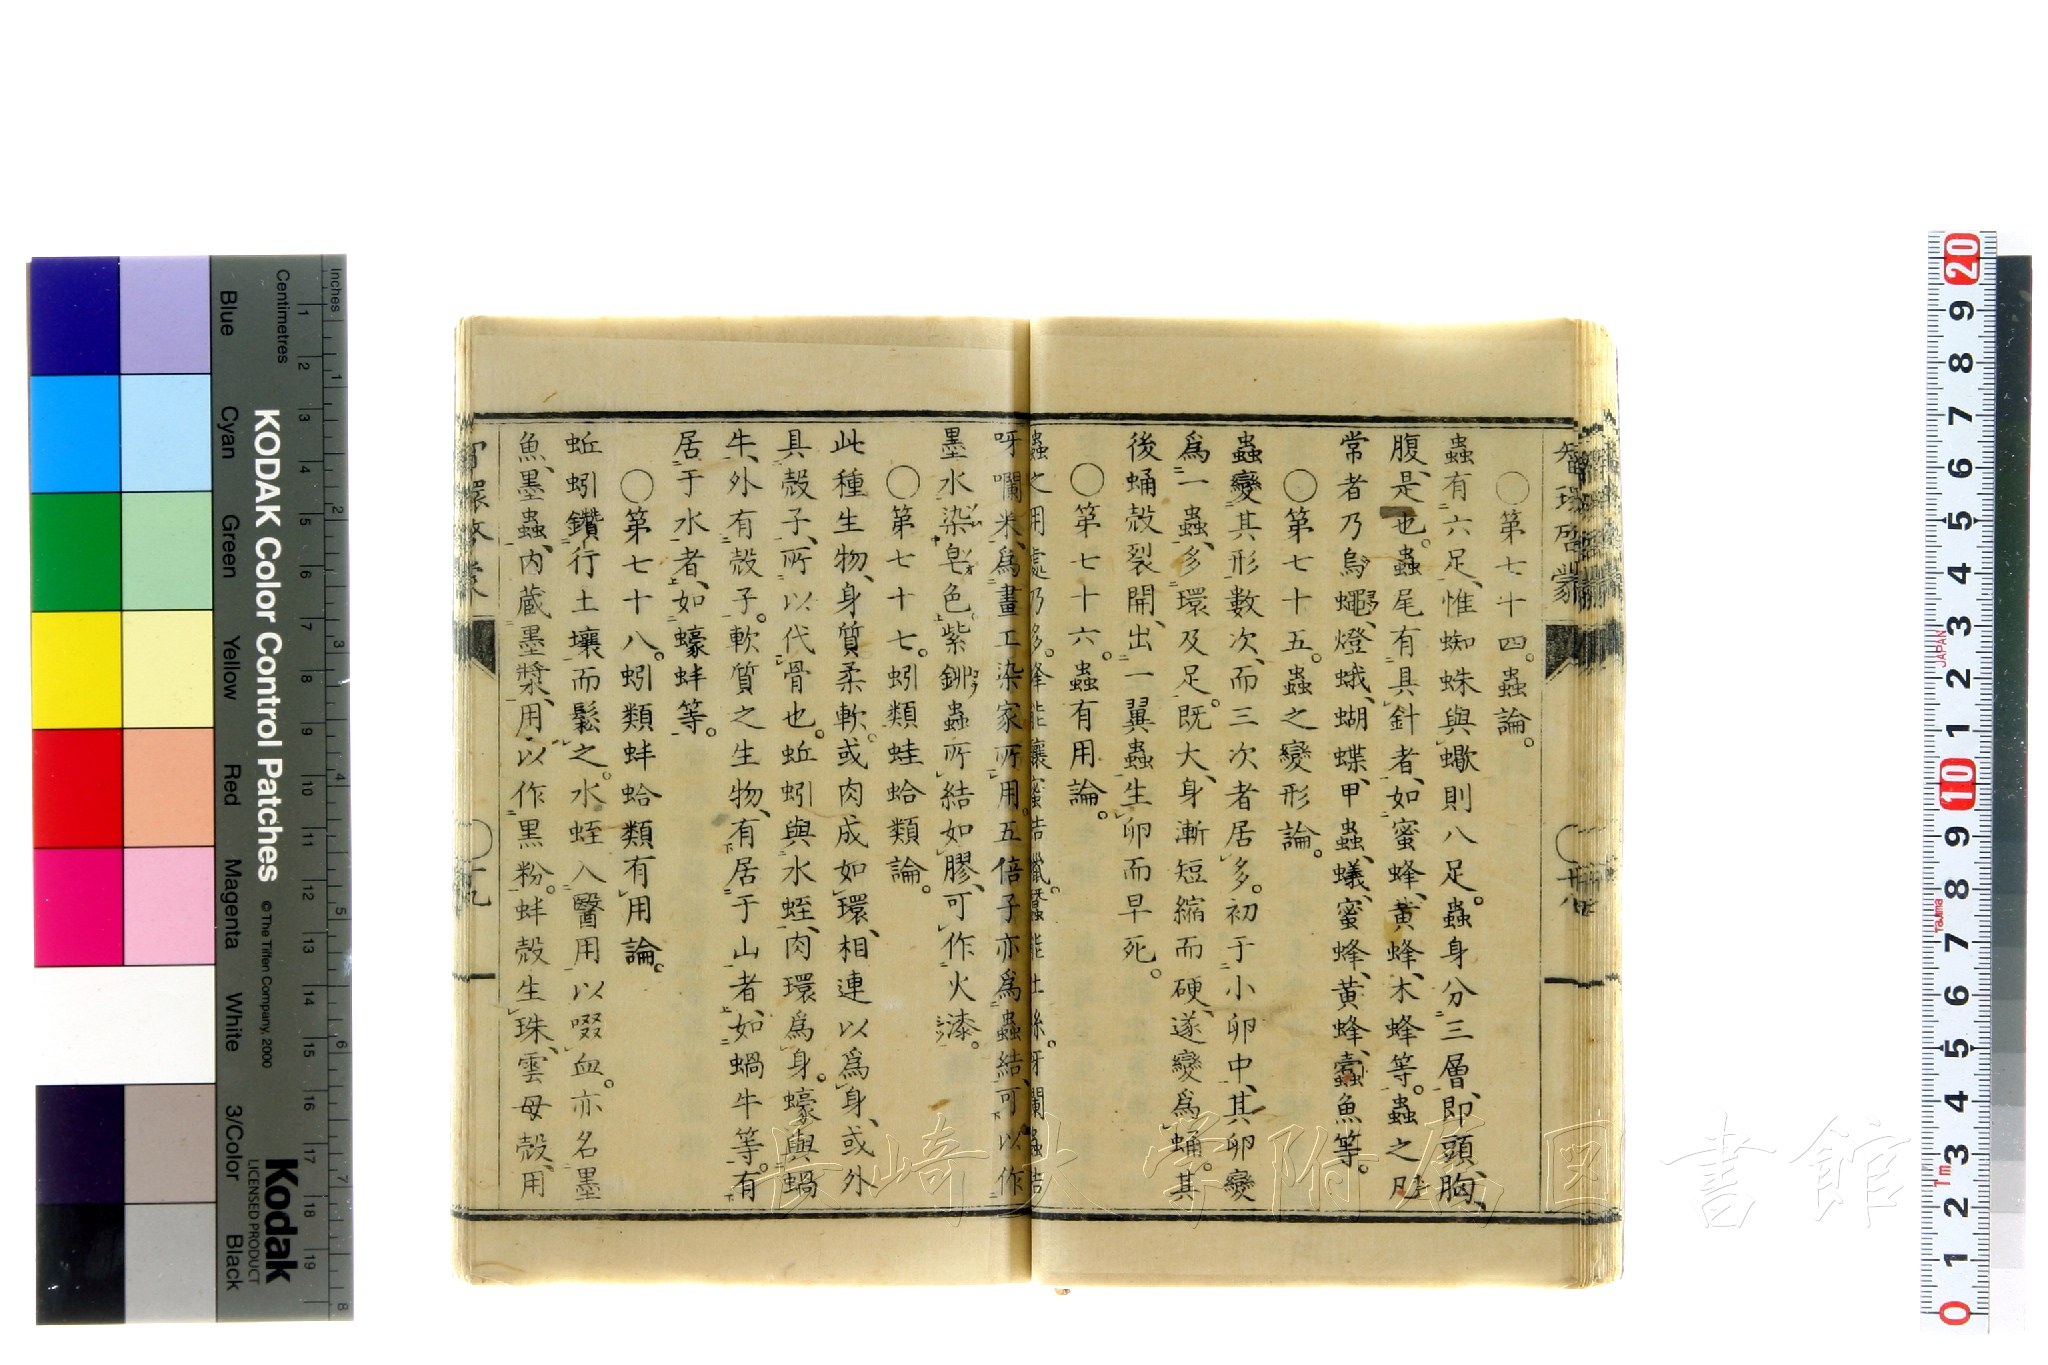 〇第七十四。蟲論。
蟲有六足、惟蜘蛛與蠍則八足。蟲身分三層、即頭、胸、
腹、是也。蟲尾有具針者、如蜜蜂、黃蜂、木蜂等。蟲之凡
常者乃烏蠅、燈蛾、蝴蝶、甲蟲、蟻、蜜蜂、黃蜂、蠹魚等。
〇第七十五。蟲之變形論。
蟲變其形數次、而三次者居多。初于小卵中、其卵變
爲一蟲、多環及足。既大、身漸短縮而硬、遂變爲蛹。其
後蛹殼裂開、出一翼蟲、生卵而早死。
〇第七十六。蟲有用論。
蟲之用處乃多。蜂能釀蜜結蠟。蠶能吐絲。呀囒蟲結
呀囒米、爲畫工染家所用。五倍子亦爲蟲結、可以作
墨水染皂色。紫鉚蟲所結如膠、可作火漆。
〇第七十七。蚓類蛙蛤類論。
此種生物、身質柔軟。或肉成如環、相連以爲身、或外
具殼子、所以代骨也。蚯蚓與水蛭、肉環爲身。蠔與蝸
牛、外有殼子。軟質之生物、有居于山者、如蝸牛等。有
居于水者、如蠔蚌等。
〇第七十八。蚓類蚌蛤類有用論。
蚯蚓鑽行土壤而鬆之。水蛭入醫用以啜血。亦名墨
魚、墨蟲、內蔵墨漿、用以作黒粉。蚌殼生珠、雲母殼用
智環啓蒙
KODAK Color Control Patches
© The Tiffen Company, 2000
Kodak
LICENSED PRODUCT
Inches
Centimetres
Blue
Cyan
Green
Yellow
Red
Magenta
White
3/Color
Black
1 2 3 4 5 6 7 8 9 10 11 12 13 14 15 16 17 18 19
1 2 3 4 5 6 7 8
20 9 8 7 6 5 4 3 2 1 10 9 8 7 6 5 4 3 2 1 0
JAPAN
Tajima
1m
長崎大学附属図書館